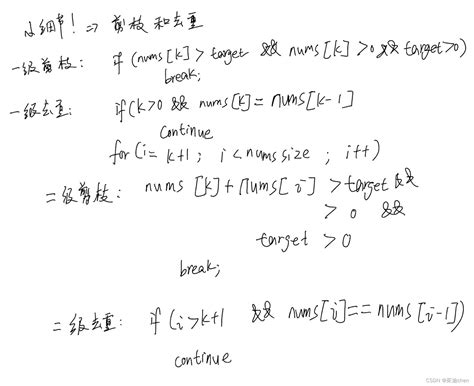 小细节! => 剪枝和去重
一级剪枝: if (nums[k] > target && nums[k] > 0 && target > 0)
break;
一级去重: if(k>0 && nums[k] = nums[k-1]
continue
for (i = k+1 ; i < nums size ; i++)
二级剪枝: nums [k] + nums[i] > target &&
> 0 &&
target > 0
break;
二级去重: if (i > k+1 && nums[i] == nums [i-1])
continue